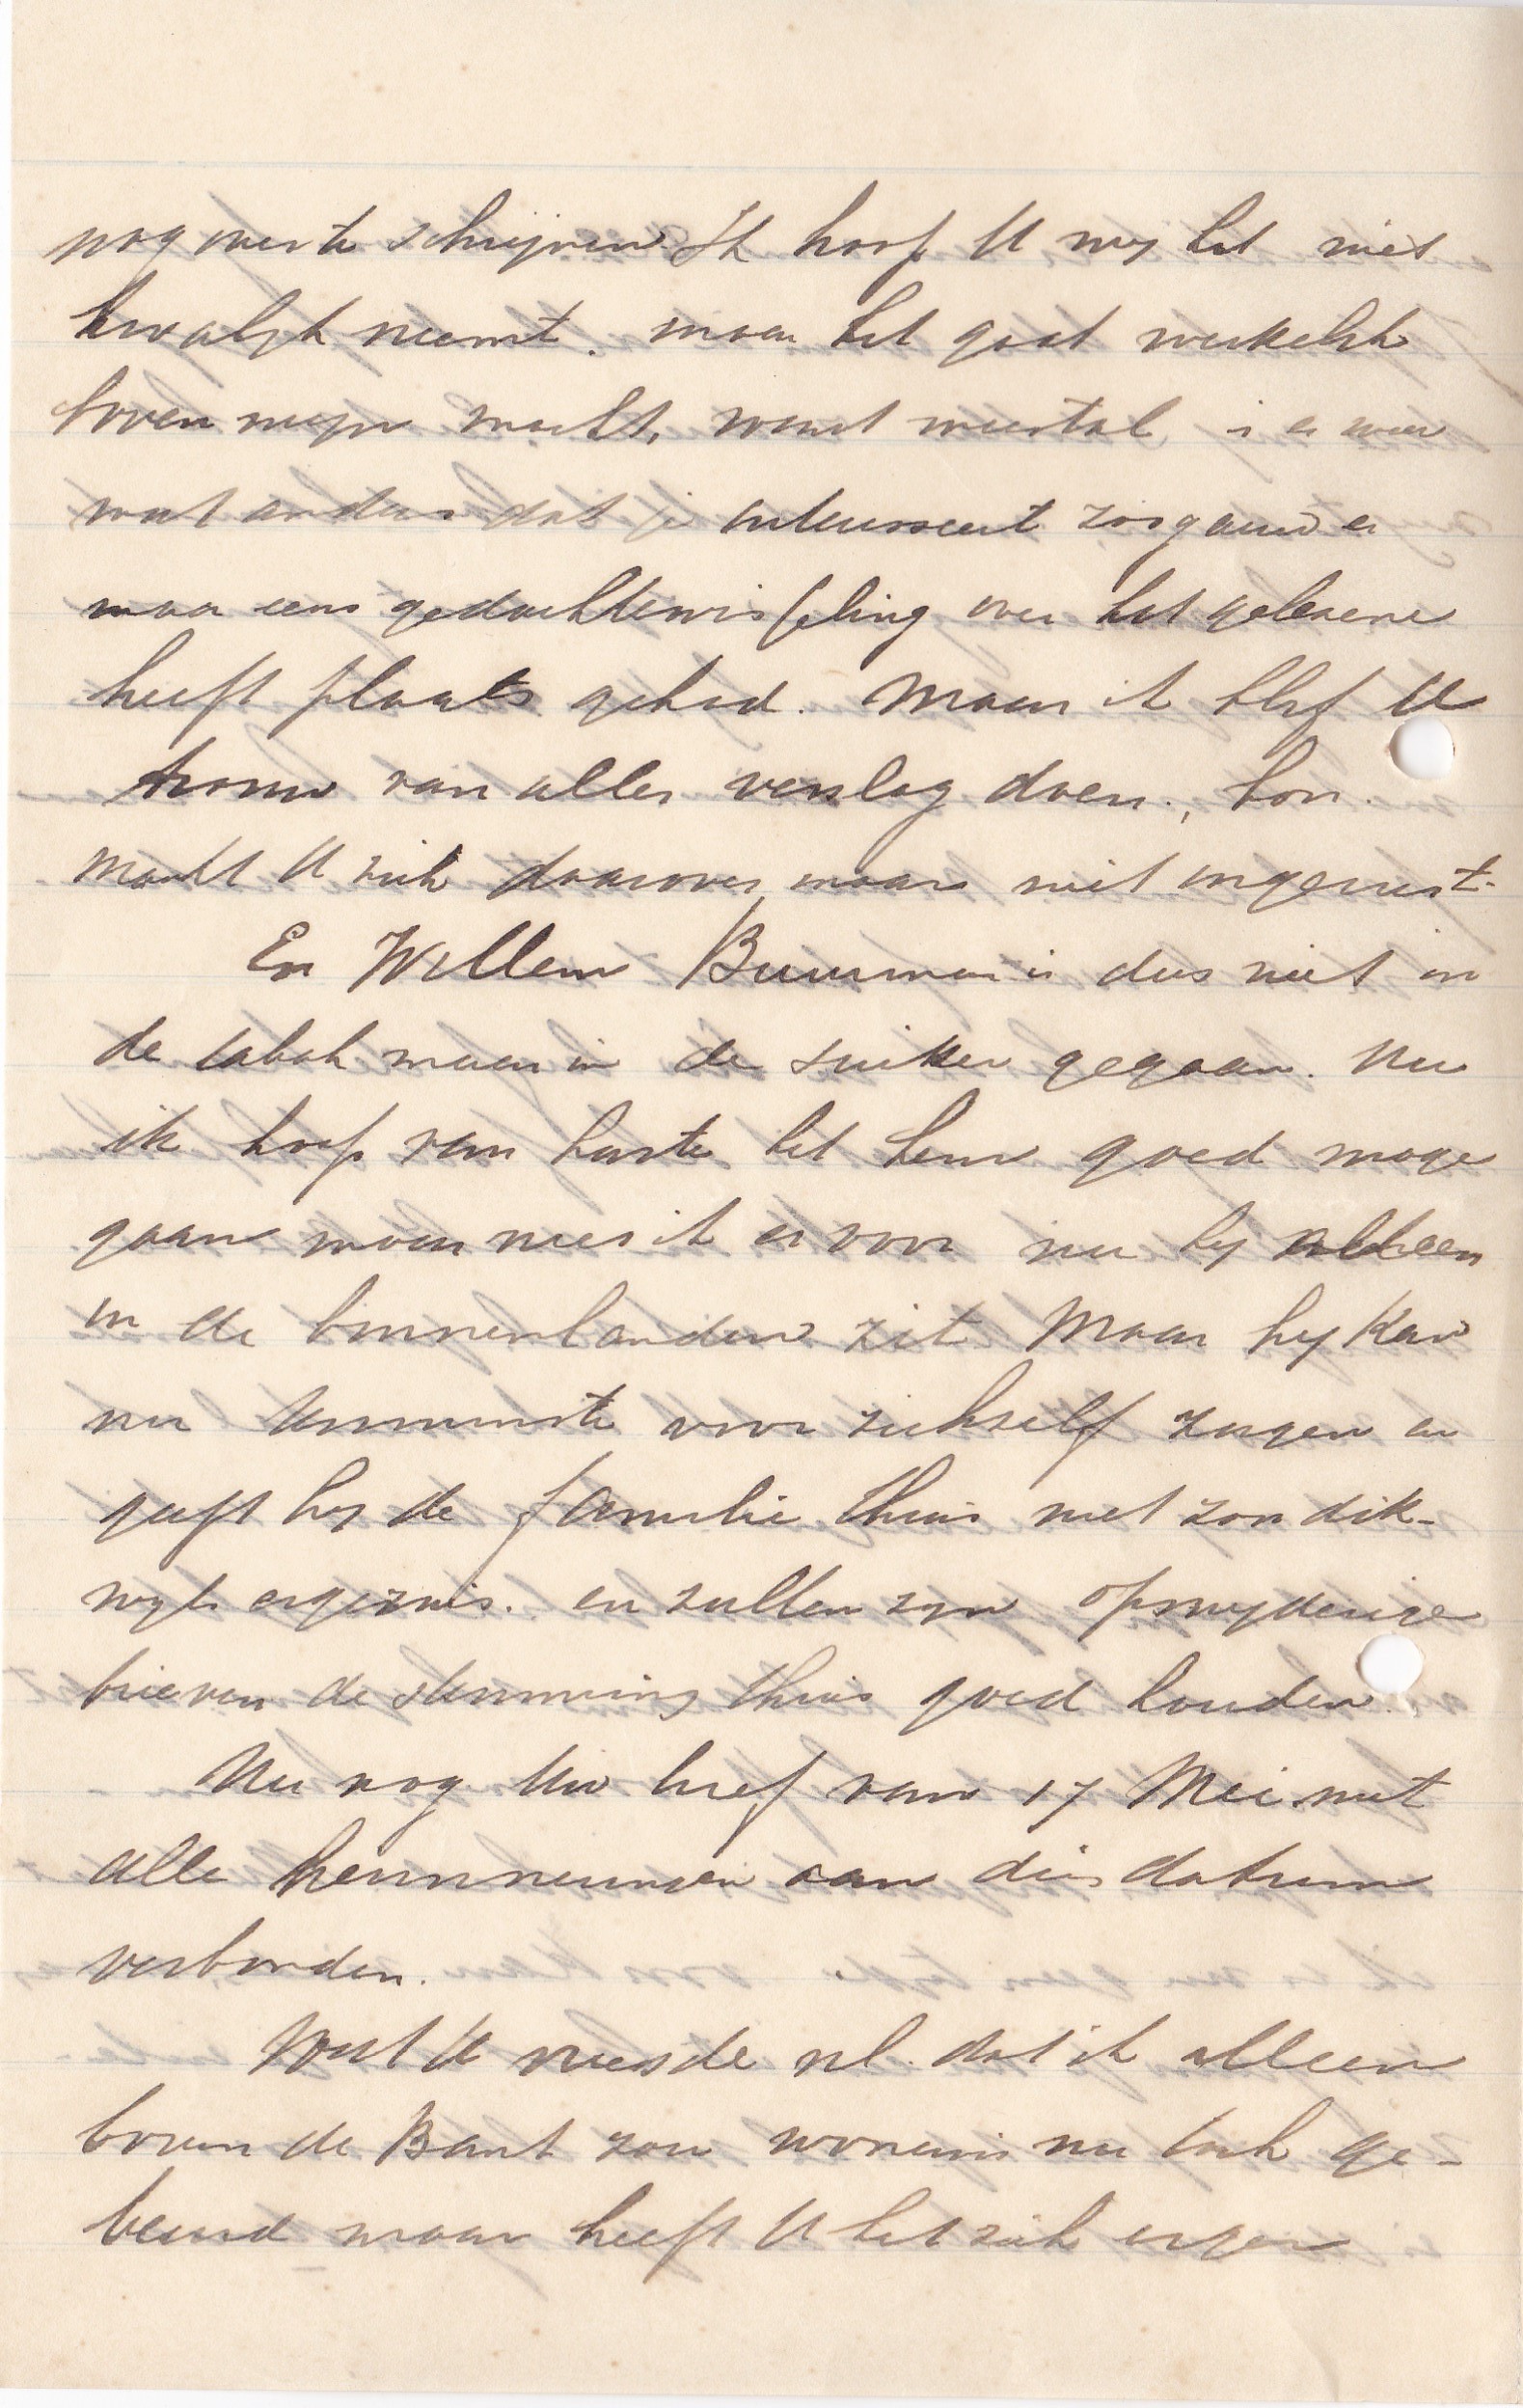 nog over te schrijven. Ik hoop U mij het niet
kwalijk neemt. maar het gaat werkelijk
boven mijn macht, want meestal is er weer
wat anders dat je interesseert zoogauw er
maar eens gedachtenwisseling over het gelezene
heeft plaats gehad. Maar ik blijf U
trouw van alles verslag doen., hoor.
Maakt U zich daarover maar niet ongerust.
En Willem Buurman is dus niet in
de tabak maar in de suiker gegaan. Nu
ik hoop van harte het hem goed moge
gaan maar vrees ik er voor nu hij alleen
in de binnenlanden zit. Maar hij kan
nu tenminste voor zichzelf zorgen en
geeft hij de familie thuis niet zoo dik-
wijls ergernis. en zullen zijn opsnijderige
brieven de stemming thuis goed houden.
Nu nog Uw brief van 17 Mei met
alle herinneringen aan dien datum
verbonden.
Wat U vreesde nl. dat ik alleen
boven de Bank zou wonen is nu toch ge-
beurd maar heeft U het zich erger